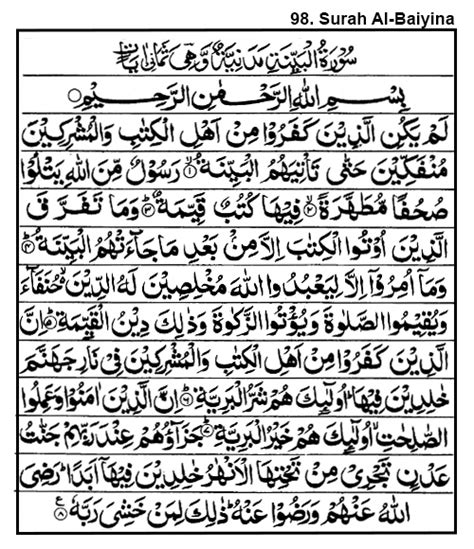 98. Surah Al-Baiyina
سُوْرَةُ الْبَيِّنَةِ مَدَنِيَّةٌ وَّهِىَ ثَمَانِىْ اٰيَاتٍ
بِسْمِ اللهِ الرَّحْمٰنِ الرَّحِيْمِ
لَمْ يَكُنِ الَّذِيْنَ كَفَرُوْا مِنْ اَهْلِ الْكِتٰبِ وَالْمُشْرِكِيْنَ
مُنْفَكِّيْنَ حَتّٰى تَاْتِيَهُمُ الْبَيِّنَةُ ۙ﴿۱﴾ رَسُوْلٌ مِّنَ اللهِ يَتْلُوْا
صُحُفًا مُّطَهَّرَةً ۙ﴿۲﴾ فِيْهَا كُتُبٌ قَيِّمَةٌ ؕ﴿۳﴾ وَمَا تَفَرَّقَ
الَّذِيْنَ اُوْتُوا الْكِتٰبَ اِلَّا مِنْۢ بَعْدِ مَا جَآءَتْهُمُ الْبَيِّنَةُ ؕ﴿۴﴾
وَمَاۤ اُمِرُوْۤا اِلَّا لِيَعْبُدُوا اللهَ مُخْلِصِيْنَ لَهُ الدِّيْنَ ۙ حُنَفَآءَ
وَيُقِيْمُوا الصَّلٰوةَ وَيُؤْتُوا الزَّكٰوةَ وَذٰلِكَ دِيْنُ الْقَيِّمَةِ ؕ﴿۵﴾ اِنَّ
الَّذِيْنَ كَفَرُوْا مِنْ اَهْلِ الْكِتٰبِ وَالْمُشْرِكِيْنَ فِىْ نَارِ جَهَنَّمَ
خٰلِدِيْنَ فِيْهَا ؕ اُولٰٓئِكَ هُمْ شَرُّ الْبَرِيَّةِ ؕ﴿۶﴾ اِنَّ الَّذِيْنَ اٰمَنُوْا وَعَمِلُوا
الصّٰلِحٰتِ ۙ اُولٰٓئِكَ هُمْ خَيْرُ الْبَرِيَّةِ ؕ﴿۷﴾ جَزَآؤُهُمْ عِنْدَ رَبِّهِمْ جَنّٰتُ
عَدْنٍ تَجْرِىْ مِنْ تَحْتِهَا الْاَنْهٰرُ خٰلِدِيْنَ فِيْهَاۤ اَبَدًا ؕ رَضِىَ
اللهُ عَنْهُمْ وَرَضُوْا عَنْهُ ؕ ذٰلِكَ لِمَنْ خَشِىَ رَبَّهٗ ﴿۸﴾